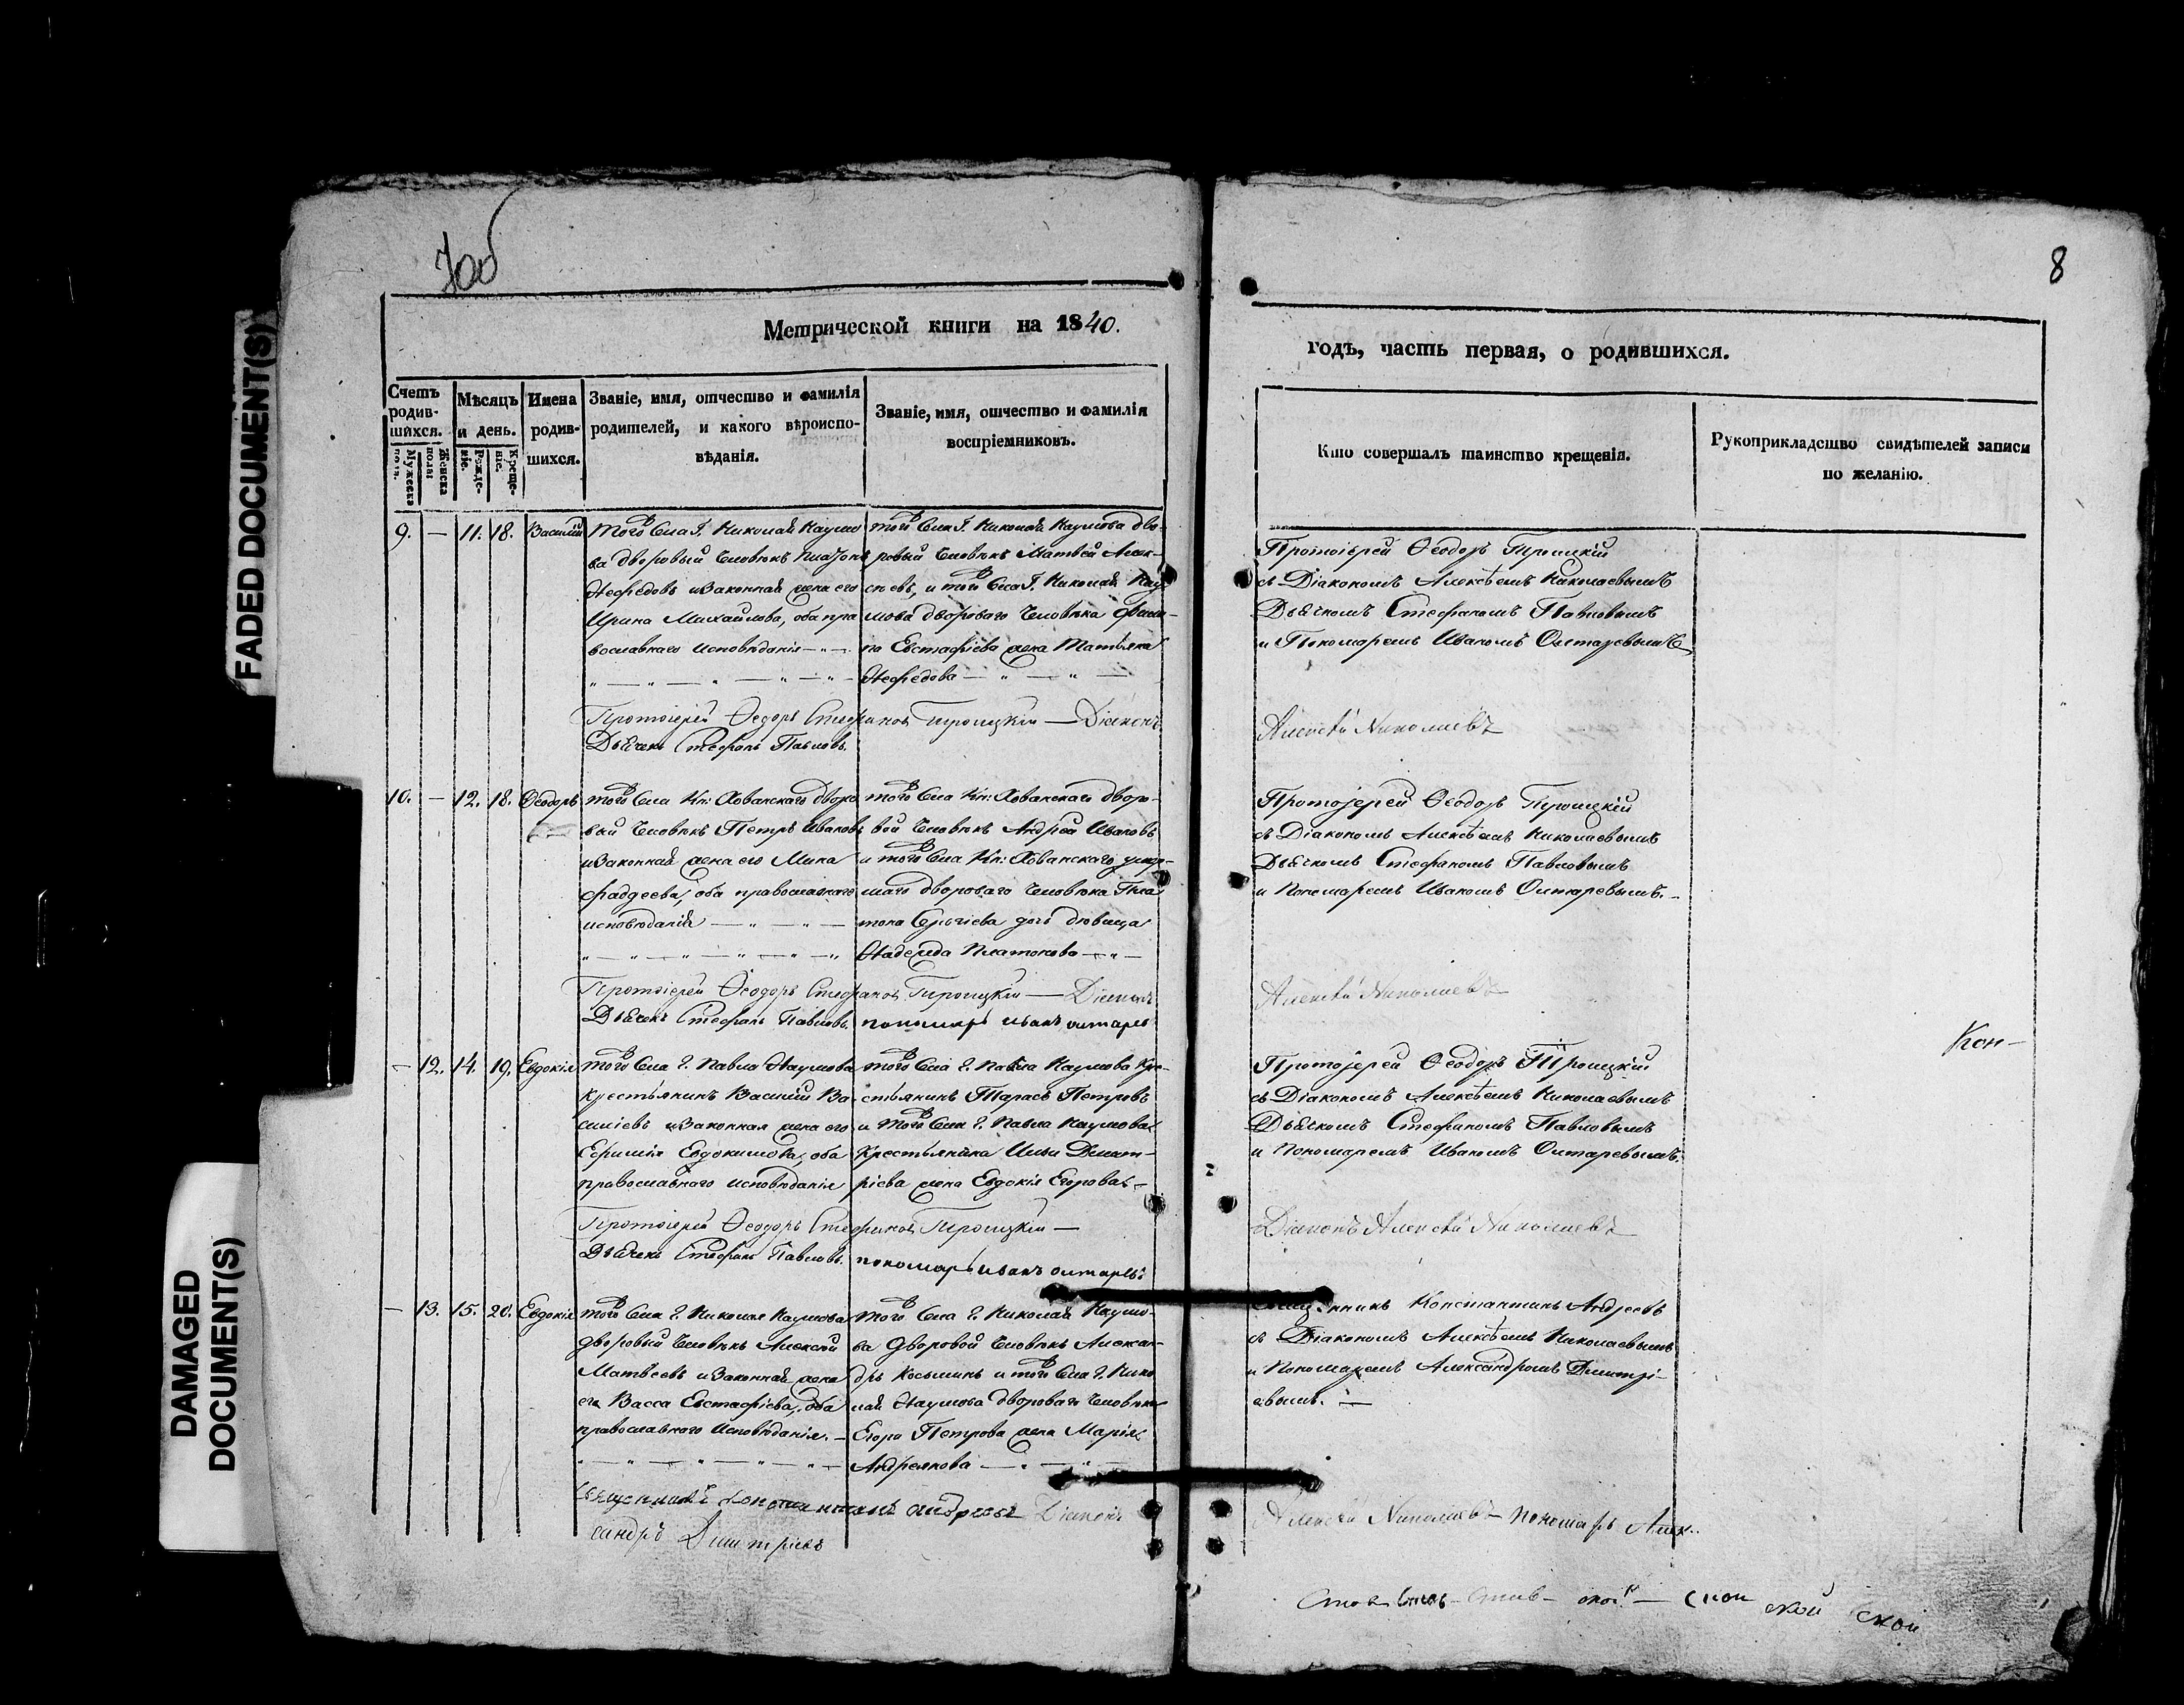 FADED DOCUMENT(S)
DAMAGED
DOCUMENT(S)
7об
8
Метрической книги на 1840.
годъ, часть первая, о родившихся.
Счетъ родив- шихся.
Мужеска пола.
Женска пола.
Мѣсяцъ и день.
Рожде- ніе.
Креще- ніе.
Имена родив- шихся.
Званіе, имя, отчество и фамилія
родителей, и какого вѣроиспо-
вѣданія.
Званіе, имя, отчество и фамилія
воспріемниковъ.
Кто совершалъ таинство крещенія.
Рукоприкладство свидѣтелей записи
по желанію.
9. — 11. 18. Василій
Того Села Г. Николай Наумо
ва дворовый Человѣкъ Платонъ
Нефедовъ и Законная жена его
Ирина Михайлова, оба пра
вославнаго исповѣданія
Того Села Г. Николая Наумова дво-
ровый Человѣкъ Матвей Алек-
сѣевъ, и того Села Г. Николай Нау
мова двороваго Человѣка
Евстафіева жена Татьяна
Нефедова
Протоіерей Ѳеодоръ Троицкій
съ Діакономъ Алексѣемъ Николаевымъ
Дьячкомъ Стефаномъ Павловымъ
и Пономаремъ Иваномъ Олтаревымъ
Протоіерей Ѳедоръ Стефановъ Троицкій — Діаконъ
Алексѣй Николаевъ
Дьячекъ Стефанъ Павловъ.
10. — 12. 18. Ѳеодоръ
того Села Кн: Хованскаго дворо
вый Человѣкъ Петръ Ивановъ
и Законная жена его Мина
Фадѣева, оба православнаго
исповѣданія
того Села Кн: Хованскаго дворо-
вой Человѣкъ Андрей Ивановъ
и того Села Кн: Хованскаго умер-
шаго двороваго Человѣка Пла
тона Сергіева дочь дѣвица
Надежда Платонова
Протоіерей Ѳеодоръ Троицкій
съ Діакономъ Алексѣемъ Николаевымъ
Дьячкомъ Стефаномъ Павловымъ
и Пономаремъ Иваномъ Олтаревымъ.
Протоіерей Ѳеодоръ Стефановъ Троицкій — Діаконъ
Алексѣй Николаевъ
Дьячекъ Стефанъ Павловъ. пономарь иванъ олтаревъ
Кон-
— 12. 14. 19. Евдокія
того Села г. Павла Наумова
Крестьянинъ Василій Ва-
силіевъ и Законная жена его
Ефимія Евдокимова, оба
православнаго исповѣданія
того Села г. Павла Наумова Кре-
стьянинъ Тарасъ Петровъ
и того Села г. Павла Наумова
Крестьянина Ильи Дмит-
ріева жена Евдокія Егорова
Протоіерей Ѳеодоръ Троицкій
съ Діакономъ Алексѣемъ Николаевымъ
Дьячкомъ Стефаномъ Павловымъ
и Пономаремъ Иваномъ Олтаревымъ.
Протоіерей Ѳеодоръ Стефановъ Троицкій —
Діаконъ Алексѣй Николаевъ
Дьячекъ Стефанъ Павловъ. пономарь иванъ олтаревъ
— 13. 15. 20. Евдокія
того Села г. Николая Наумова
дворовый Человѣкъ Алексѣй
Матвѣевъ и Законная жена
его Васса Евстафіева, оба
православнаго Исповѣданія.
того Села г. Николай Наумо-
ва дворовой Человѣкъ Алексан-
дръ Косминъ и того Села г. Нико
лай Наумова двороваго Человѣка
Егора Петрова жена Марія
Андреянова
Священникъ Константинъ Андреевъ
съ Діакономъ Алексѣемъ Николаевымъ
и Пономаремъ Александромъ Дмитрі-
евымъ.
Священникъ константинъ андреевъ Діаконъ
Алексѣй Николаевъ Пономарь Алек-
сандръ Дмитріевъ
ской ской